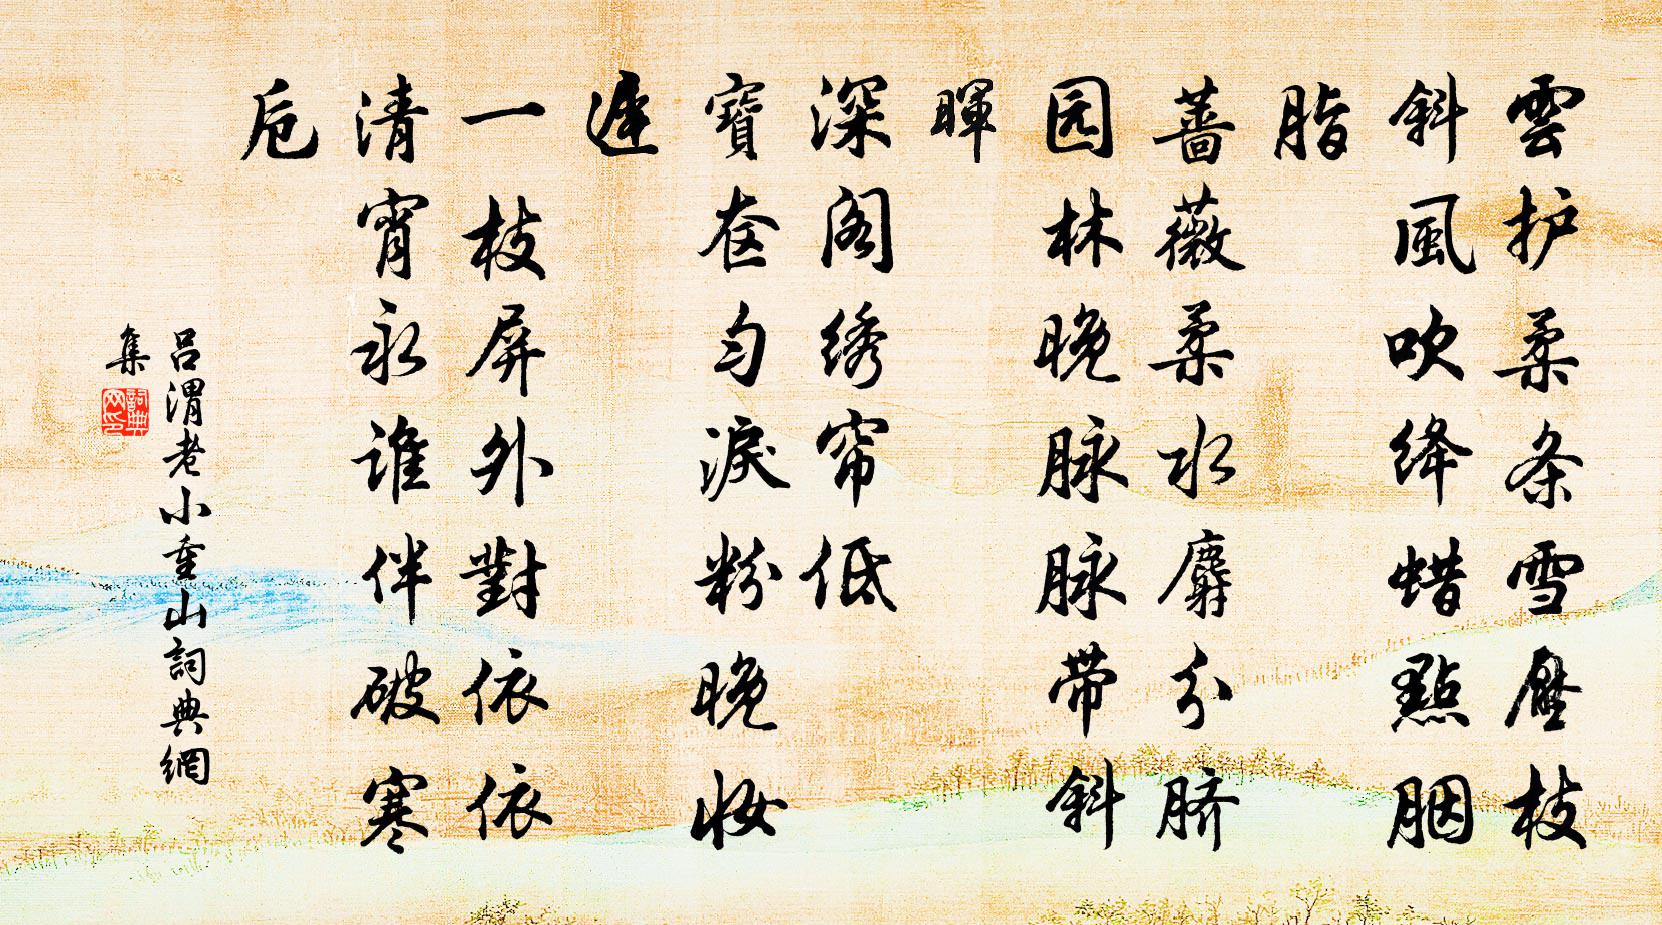 雲护柔条雪壓枝
斜風吹绛蜡點胭
脂
薔薇柔水麝分脐
园林晚脉脉带斜
暉
深阁绣帘低
寶奁匀淚粉晚妆
遲
一枝屏外對依依
清宵永谁伴破寒
卮
吕渭老小重山詞典網
集
詞典
网印